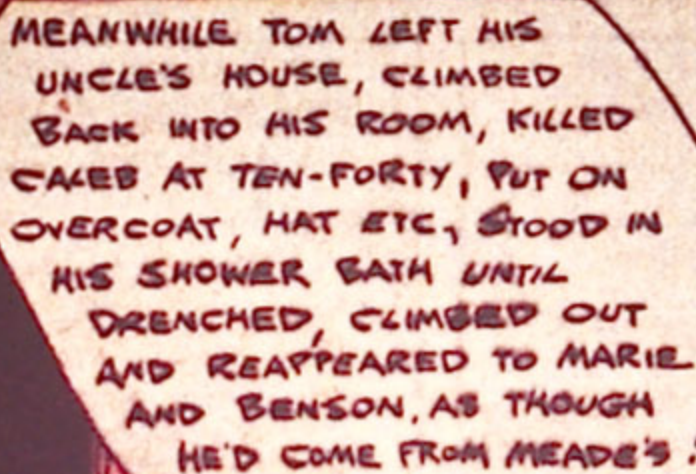 MEANWHILE TOM LEFT HIS
UNCLE'S HOUSE, CLIMBED
BACK INTO HIS ROOM, KILLED
CALEB AT TEN-FORTY, PUT ON
OVERCOAT, HAT ETC, STOOD IN
HIS SHOWER BATH UNTIL
DRENCHED, CLIMBED OUT
AND REAPPEARED TO MARIE
AND BENSON, AS THOUGH
HE'D COME FROM MEADE'S!